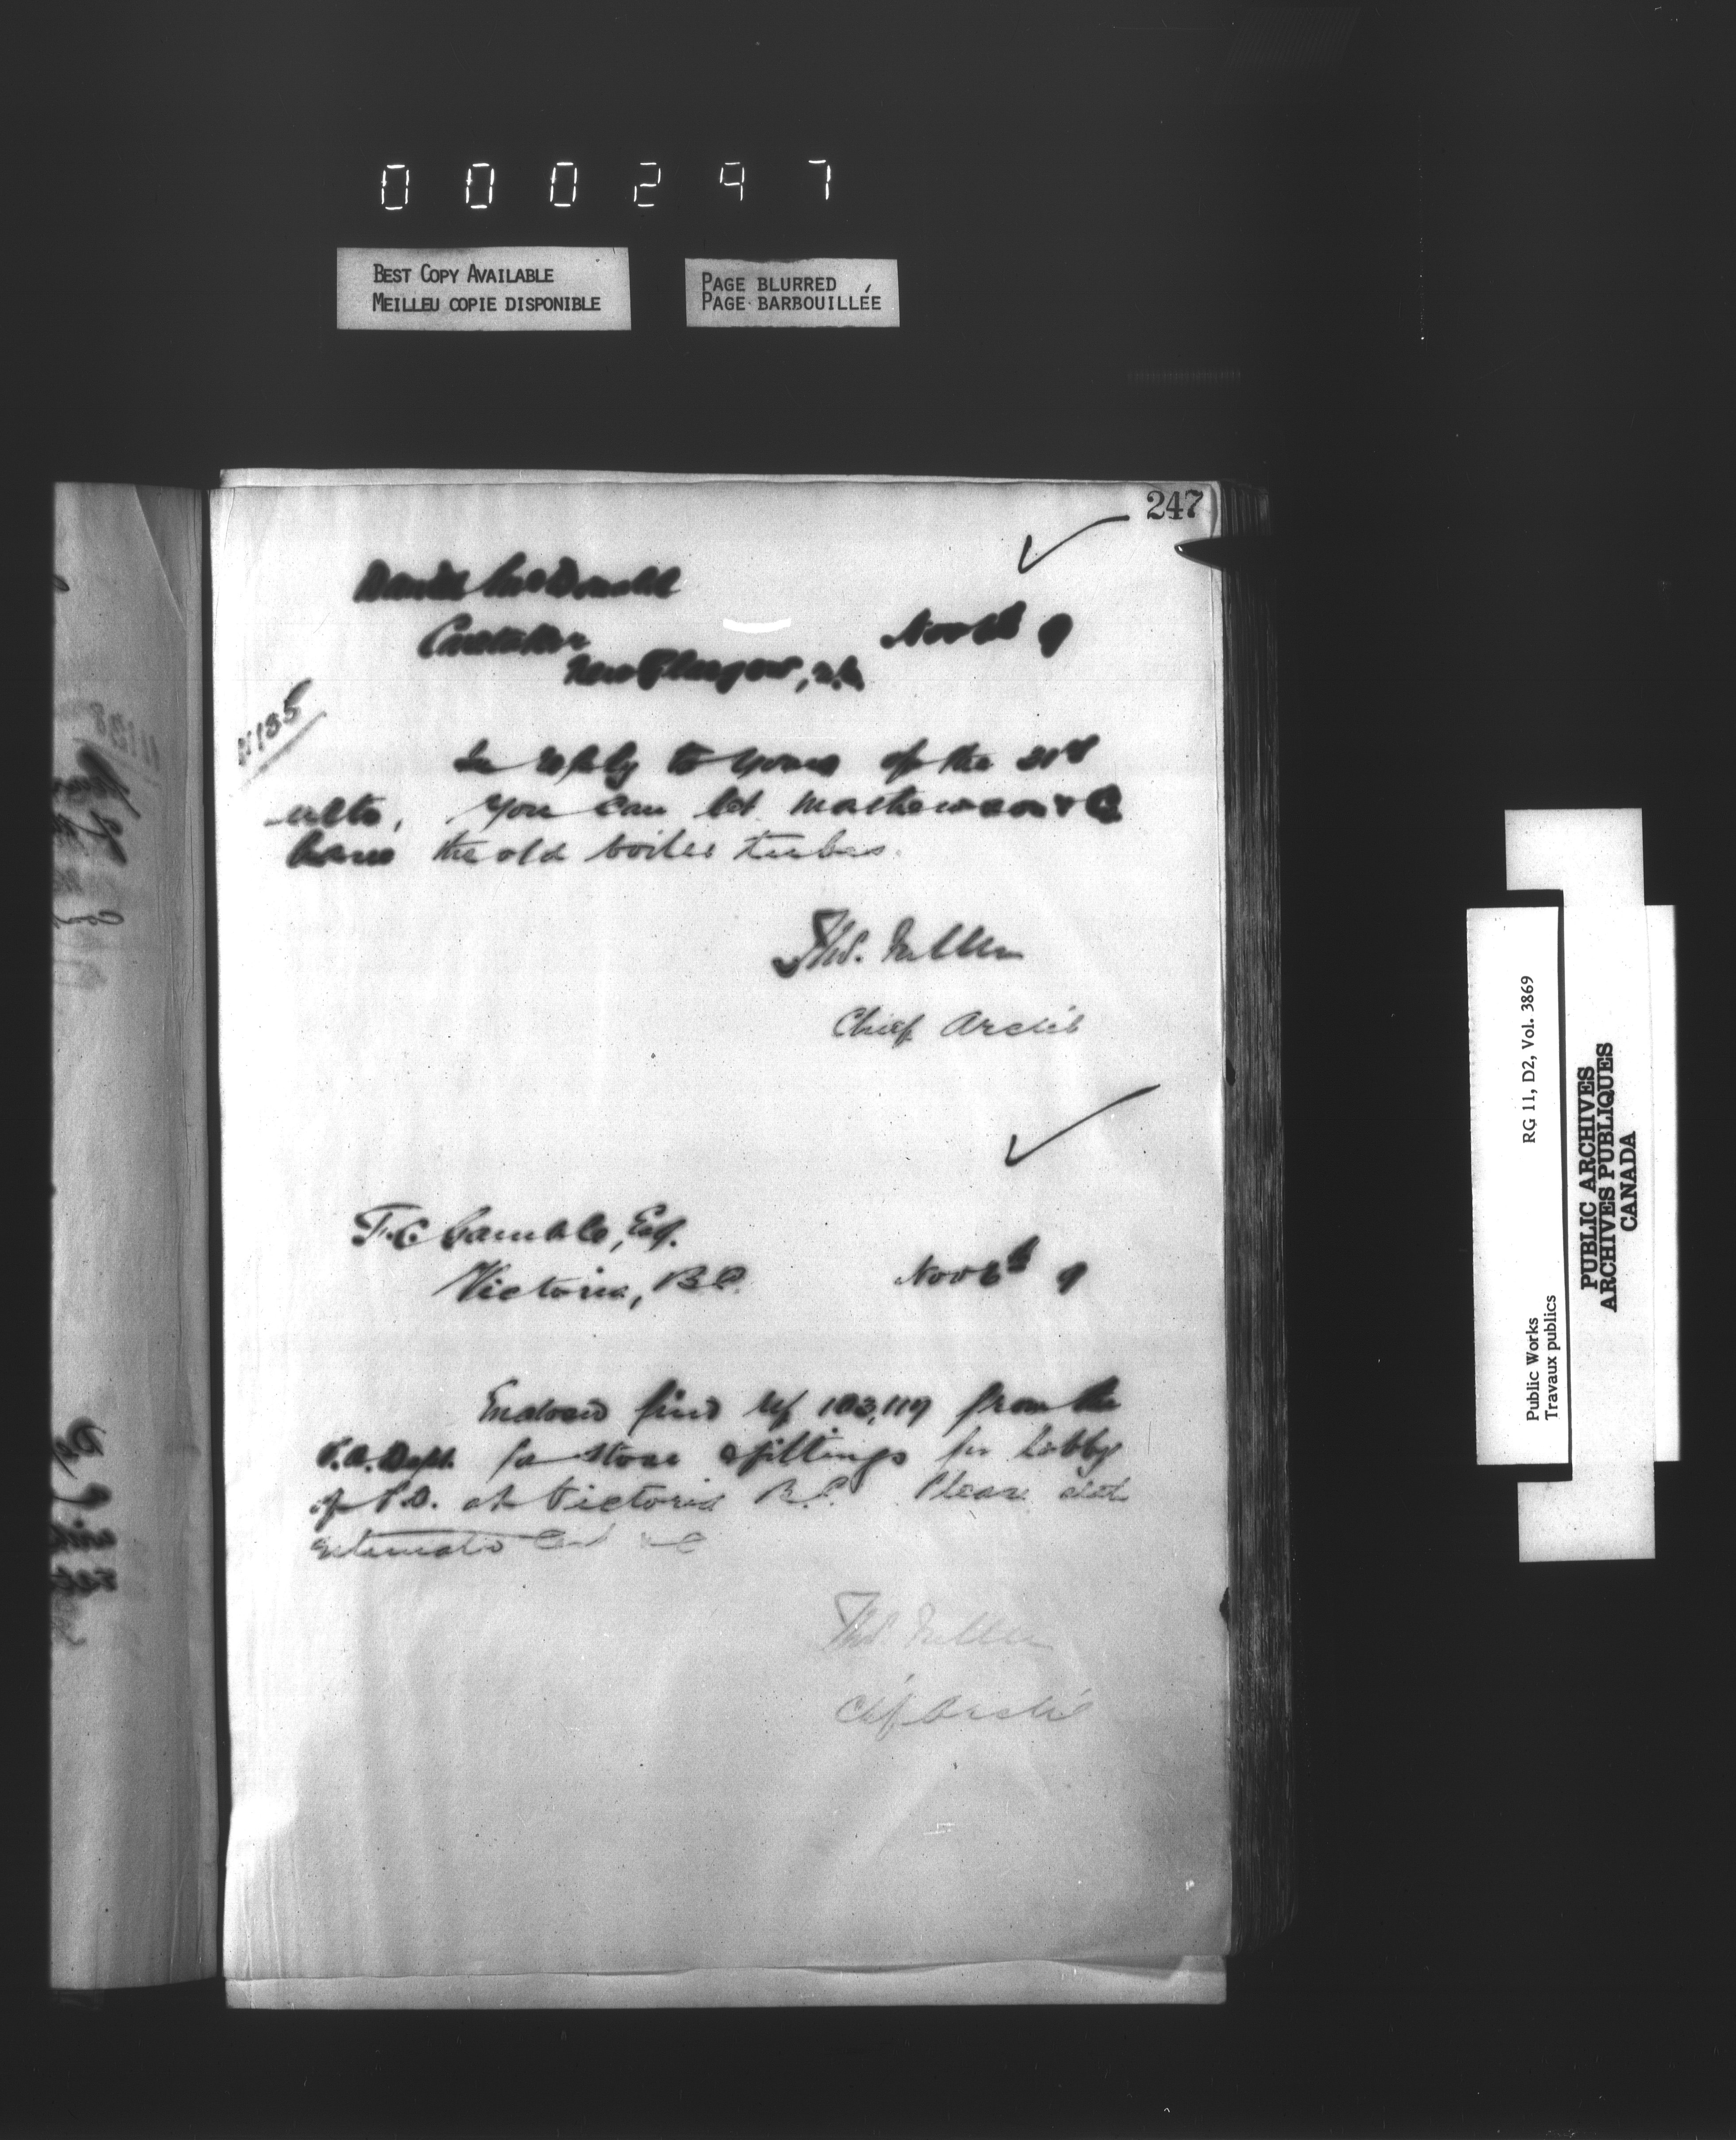 000247
BEST COPY AVAILABLE
MEILLEU COPIE DISPONIBLE
PAGE BLURRED
PAGE BARBOUILLÉE
247
Daniel McDonald
Caretaker
Nov 6th 9
New Glasgow, N.S.
In reply to yours of the 31st
ulto, you can let Mathewson & Co
have the old boiler tubes.
Thos. Fuller
Chief Archt
F.C. Gamble, Esq.
Victoria, B.C.
Nov 6th 9
Enclosed find ref 103,119 from the
P.O. Dept. for stone fittings for Lobby
of P.O. at Victoria B.C. Please
estimate
Thos. Fuller
Chf Archt
Public Works
Travaux publics
RG 11, D2, Vol. 3869
PUBLIC ARCHIVES
ARCHIVES PUBLIQUES
CANADA